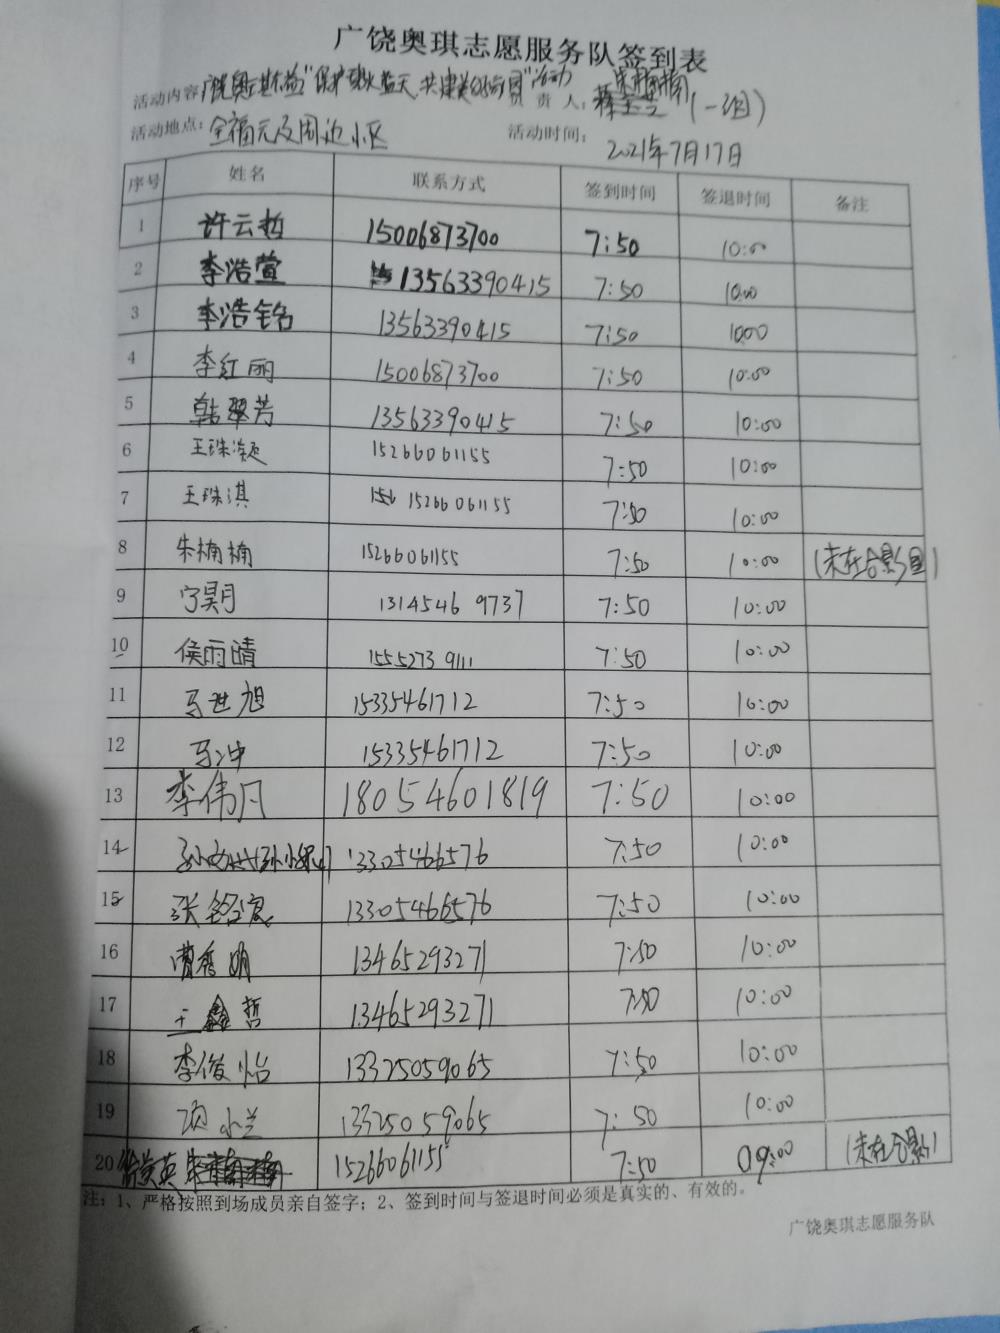 广饶奥琪志愿服务队签到表
活动内容： "保护碧水蓝天、共建美好家园"活动 负责人： 朱楠楠 (一组)
活动地点：全福元及周边小区 活动时间：2021年7月17日
序号 姓名 联系方式 签到时间 签退时间 备注
1 许云哲 15006873700 7:50 10:00
2 李浩萱 13563390415 7:50 10:00
3 李浩铭 13563390415 7:50 10:00
4 李红丽 15006873700 7:50 10:00
5 韩翠芳 13563390415 7:50 10:00
6 王珠凝 15266061155 7:50 10:00
7 王珠淇 15266061155 7:50 10:00
8 朱楠楠 15266061155 7:50 10:00 (未在合影里)
9 宁昊月 13145469737 7:50 10:00
10 侯雨晴 15552739111 7:50 10:00
11 马世旭 15335461712 7:50 10:00
12 马冲 15335461712 7:50 10:00
13 李伟凡 18054601819 7:50 10:00
14 13305466576 7:50 10:00
15 张铭宸 13305466576 7:50 10:00
16 曹秀娟 13465293271 7:50 10:00
17 王鑫哲 13465293271 7:50 10:00
18 李俊怡 13325059065 7:50 10:00
19 项小兰 13325059065 7:50 10:00
20 徐黄英 15266061155 7:50 09:00 (未在合影)
注：1、严格按照到场成员亲自签字；2、签到时间与签退时间必须是真实的、有效的。
广饶奥琪志愿服务队